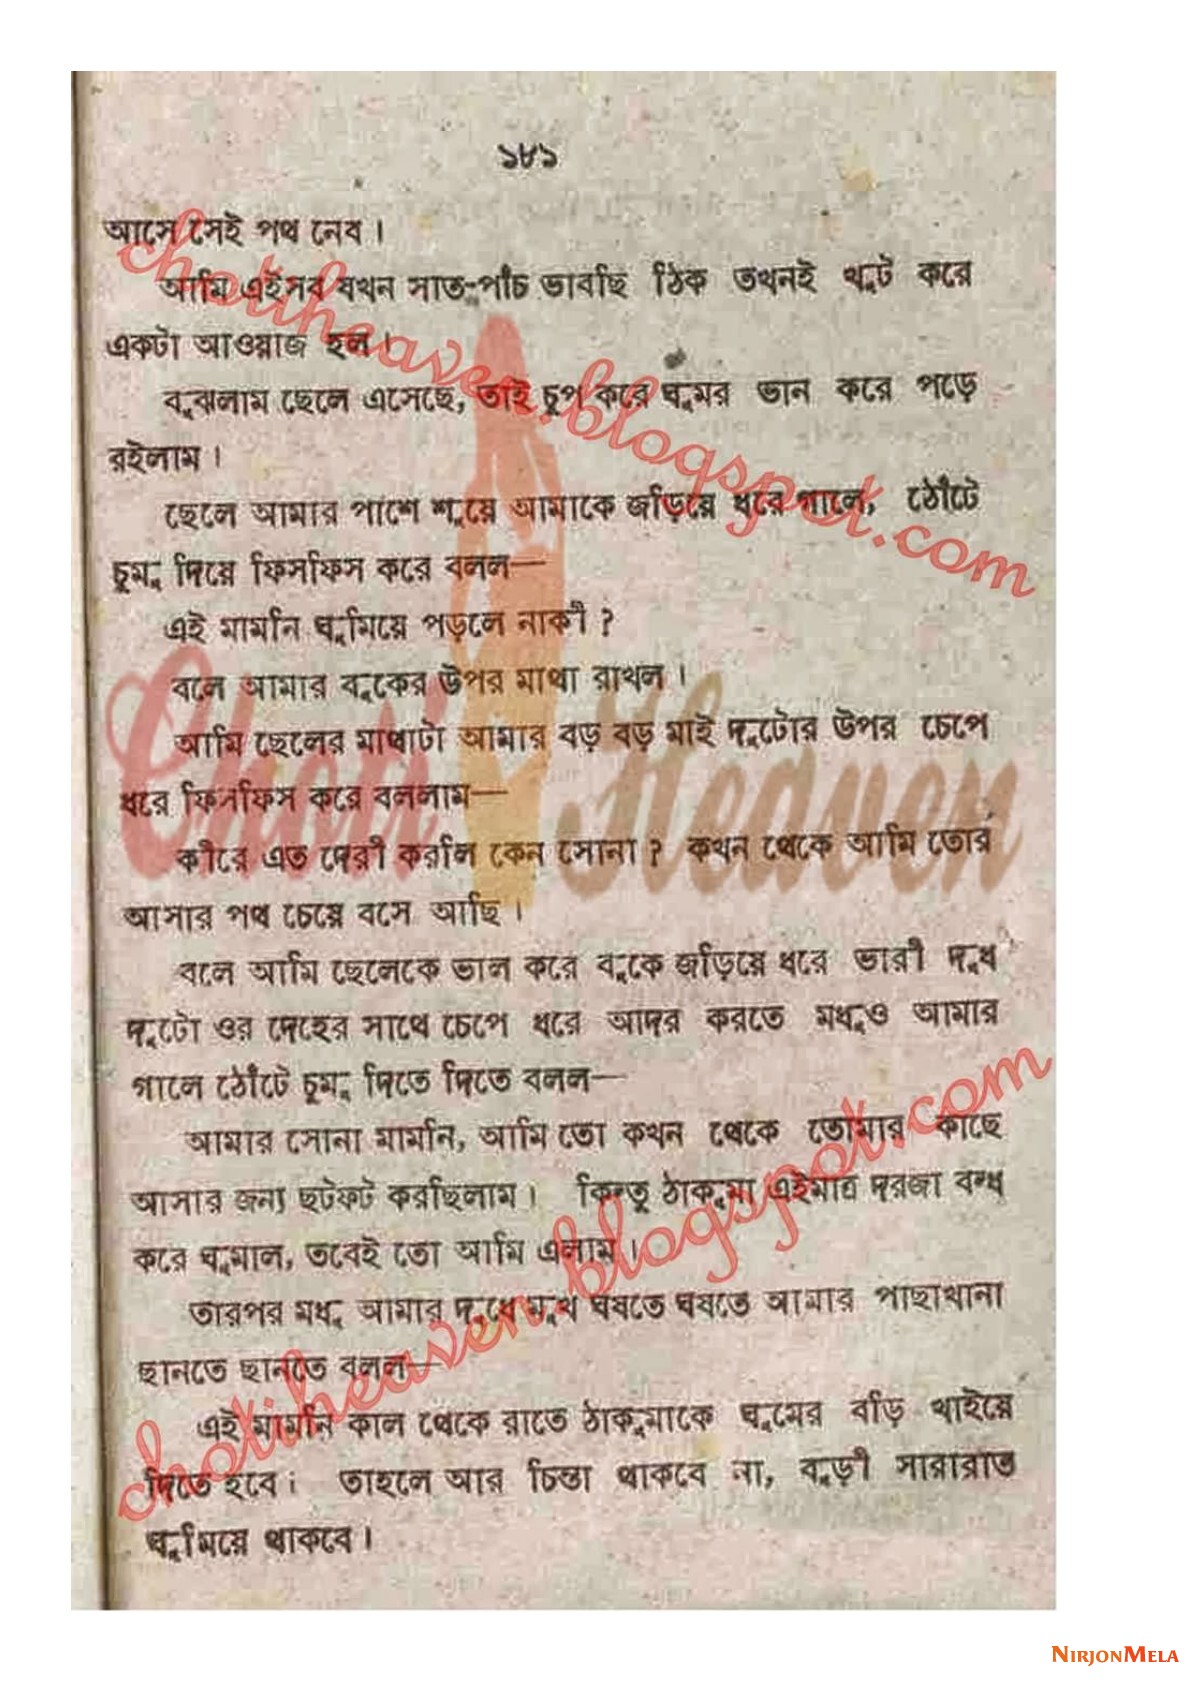 ১৮১
আসে সেই পথ নেব।
আমি এইসব যখন সাত-পাঁচ ভাবছি ঠিক তখনই খুট করে
একটা আওয়াজ হল।
বুঝলাম ছেলে এসেছে, তাই চুপ করে ঘুমর ভান করে পড়ে
রইলাম।
ছেলে আমার পাশে শুয়ে আমাকে জড়িয়ে ধরে গালে, ঠোঁটে
চুমু দিয়ে ফিসফিস করে বলল—
এই মামনি ঘুমিয়ে পড়লে নাকী?
বলে আমার বুকের উপর মাথা রাখল।
আমি ছেলের মাথাটা আমার বড় বড় মাই দুটোর উপর চেপে
ধরে ফিসফিস করে বললাম—
কীরে এত দেরী করলি কেন সোনা? কখন থেকে আমি তোর
আসার পথ চেয়ে বসে আছি।
বলে আমি ছেলেকে ভাল করে বুকে জড়িয়ে ধরে ভারী দুধ
দুটো ওর দেহের সাথে চেপে ধরে আদর করতে মধুও আমার
গালে ঠোঁটে চুমু দিতে দিতে বলল—
আমার সোনা মামনি, আমি তো কখন থেকে তোমার কাছে
আসার জন্য ছটফট করছিলাম। কিন্তু ঠাকুমা এইমাত্র দরজা বন্ধ
করে ঘুমাল, তবেই তো আমি এলাম।
তারপর মধু আমার দুধে মুখ ঘষতে ঘষতে আমার পাছাখানা
ছানতে ছানতে বলল—
এই মামনি কাল থেকে রাতে ঠাকুমাকে ঘুমের বড়ি খাইয়ে
দিতে হবে। তাহলে আর চিন্তা থাকবে না, বুড়ী সারারাত
ঘুমিয়ে থাকবে।
chotiheaven.blogspot.com
Choti Heaven
chotiheaven.blogspot.com
NIRJONMELA